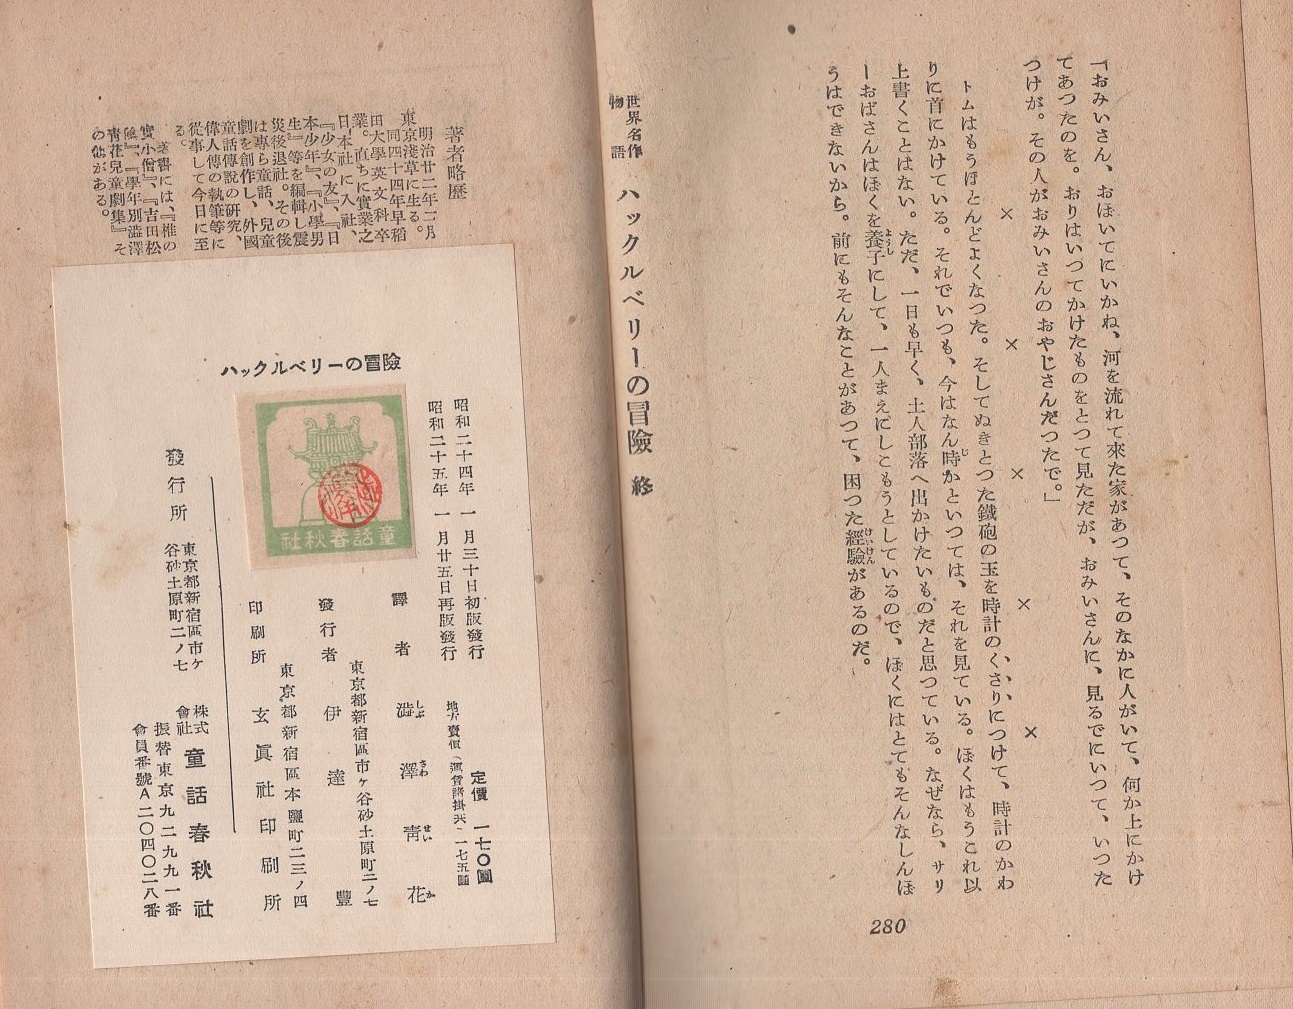 「おみいさん、おぼいてにいかね、河を流れて來た家があつて、そのなかに人がいて、何か上にかけ
てあつたのを。おりはいつてかけたものをとつて見ただが、おみいさんに、見るでにいつて、いつた
つけが。その人がおみいさんのおやじさんだつたで。」
× × × × ×
トムはもうほとんどよくなつた。そしてぬきとつた鐵砲の玉を時計のくさりにつけて、時計のかわ
りに首にかけている。それでいつも、今はなん時かといつては、それを見ている。ぼくはもうこれ以
上書くことはない。ただ、一日も早く、土人部落へ出かけたいものだと思つている。なぜなら、サリ
ーおばさんはぼくを養子にして、一人まえにしこもうとしているので、ぼくにはとてもそんなしんぼ
うはできないから。前にもそんなことがあつて、困つた經驗があるのだ。
280
世界名作物語 ハックルベリーの冒險 終
著者略歷
明治廿二年二月
東京淺草に生る。
同四十四年早稻
田大學英文科卒
業。直ちに實業之
日本社に入社、
『少女の友』、『日
本少年』、『小學男
生』等を編輯し震
災後退社。その後
は專ら童話、兒童
劇を創作し、外國
童話傳說の研究、
偉人傳の執筆等に
從事して今日に至
る。
著書には、『椎の
實小僧』、『吉田松
陰』、『學年別澁澤
靑花兒童劇集』そ
の他がある。
ハックルベリーの冒險
童話春秋社
昭和二十四年一月三十日初版發行
昭和二十五年一月廿五日再版發行
定價 一七〇圓
地方賣價(運賃諸掛共)一七五圓
譯者 澁澤靑花
しぶ さわ せい か
東京都新宿區市ヶ谷砂土原町二ノ七
發行者 伊達豐
東京都新宿區本鹽町二三ノ四
印刷所 玄眞社印刷所
東京都新宿區市ヶ
谷砂土原町二ノ七
發行所
株式會社 童話春秋社
振替東京九二九九一番
會員番號A二〇四〇二八番